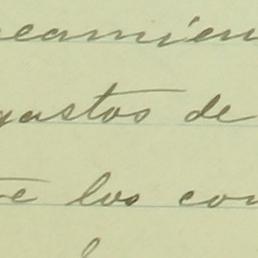 eamien
gastos de
te los con